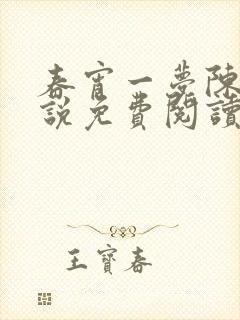 春宵一夢陳
說免費閱讀
王寶春